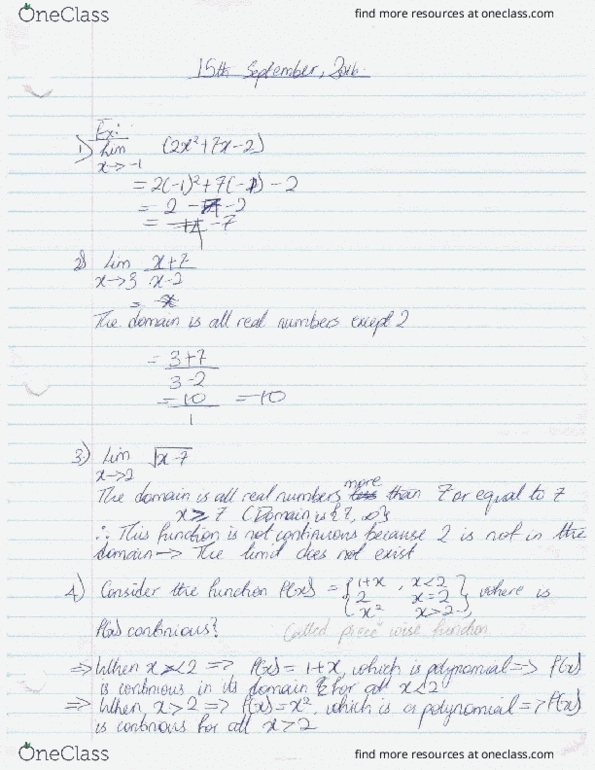 OneClass
find more resources at oneclass.com
15th September, 2016.
Ex:
1) Lim (2x²+7x-2)
x→-1
= 2(-1)²+7(-1) - 2
= 2 - 7 - 2
= -7
2) Lim x+7
x→3 x-2
=
The domain is all real numbers except 2
= 3+7
3-2
= 10 = 10
1
3) Lim √x-7
x→2
The domain is all real numbers more than 7 or equal to 7
x≥7 (Domain is {7, ∞})
∴ This function is not continuous because 2 is not in the
domain → The limit does not exist
4) Consider the function f(x) = { 1+x , x<2
2 x=2
x² x>2 } where is
f(x) continious?
Called piece wise function
⇒ When x<2 ⇒ f(x) = 1+x, which is polynomial ⇒ f(x)
is continious in its domain & for all x<2
⇒ When x>2 ⇒ f(x)=x², which is a polynomial ⇒ f(x)
is continous for all x>2
OneClass
find more resources at oneclass.com